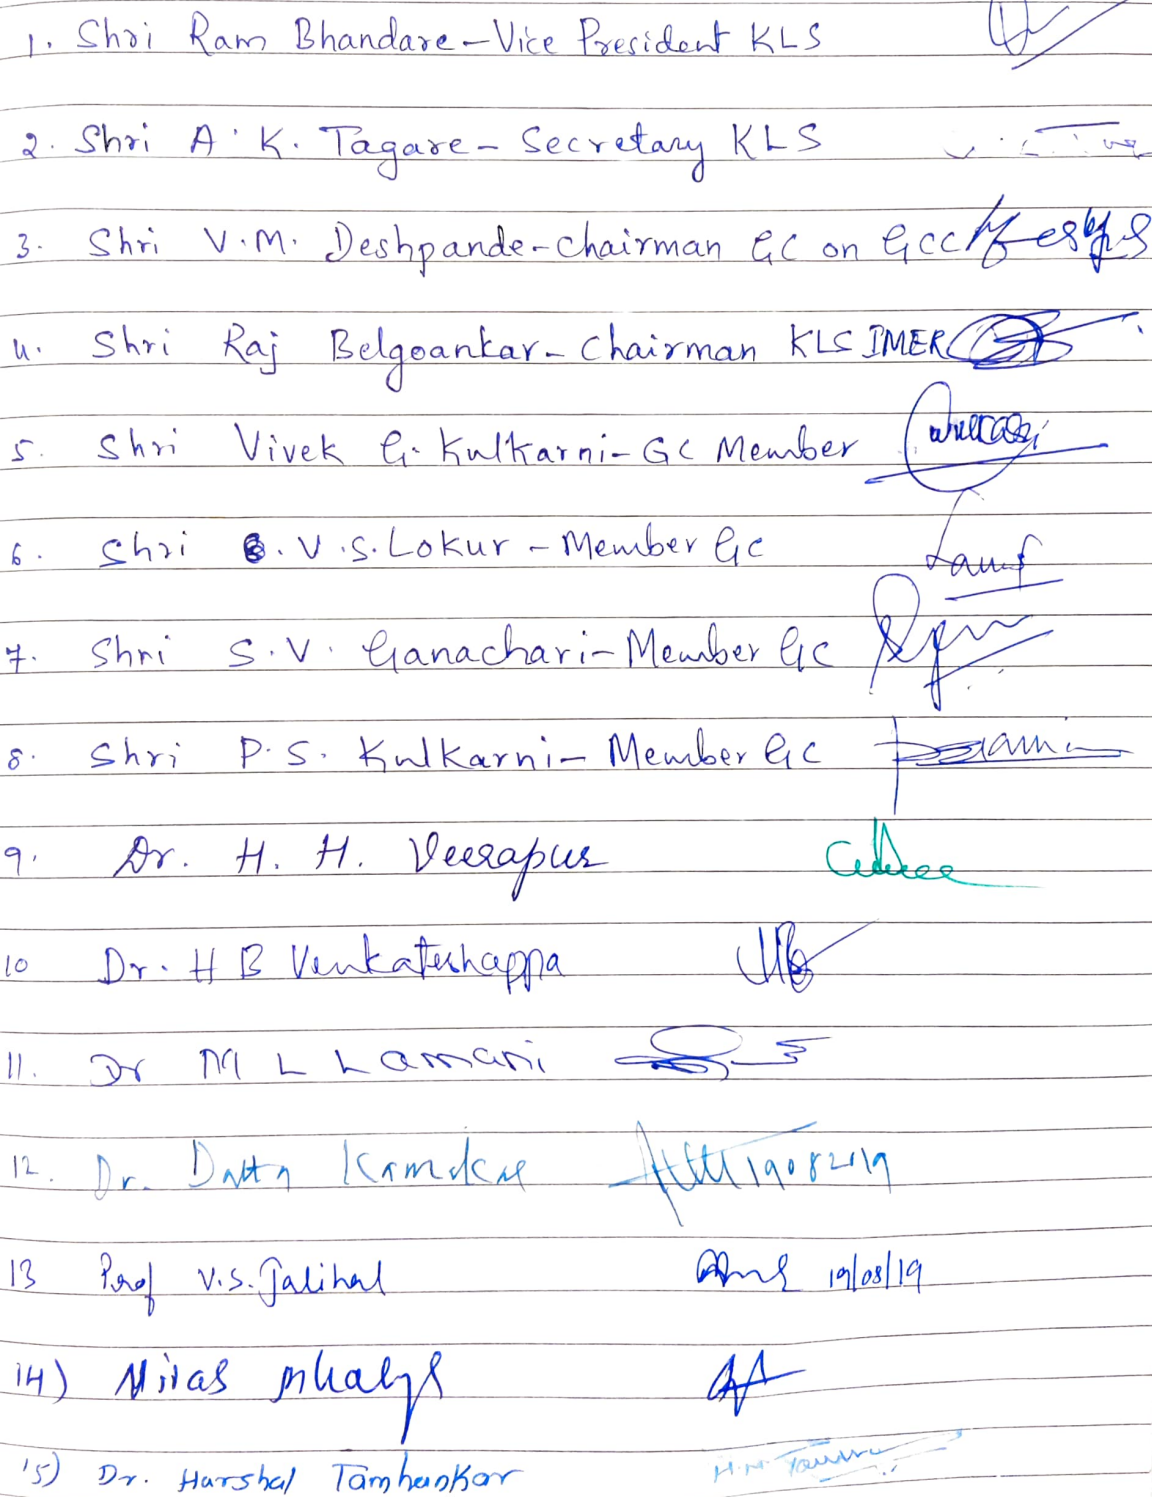 1. Shri Ram Bhandare - Vice President KLS
2. Shri A. K. Tagare - Secretary KLS
3. Shri V.M. Deshpande - Chairman GC on GCC
4. Shri Raj Belgoankar - Chairman KLS IMER
5. Shri Vivek G. Kulkarni - GC Member
6. Shri V.S. Lokur - Member GC
7. Shri S.V. Ganachari - Member GC
8. Shri P.S. Kulkarni - Member GC
9. Dr. H. H. Veerapur
10 Dr. H B Venkateshappa
11. Dr M L Lamani
12. Dr. Datta Kamkar 19082019
13 Prof V.S. Jalihal 19/08/19
14)
15) Dr. Harshal Tamhankar